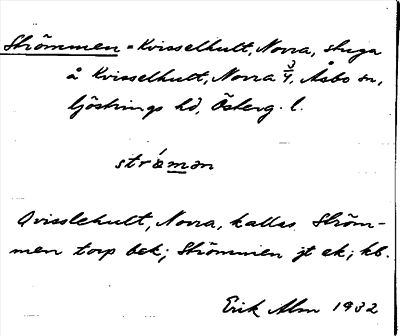 Strömmen = Kvisselhult, Norra, stuga
å Kvisselhult, Norra 3/4, Åsbo sn,
Göstrings hd, Österg. l.
strö́mən
Qvisslehult, Norra, kallas Ström-
men torp bek; Strömmen jt ek; kb.
Erik Alm 1932